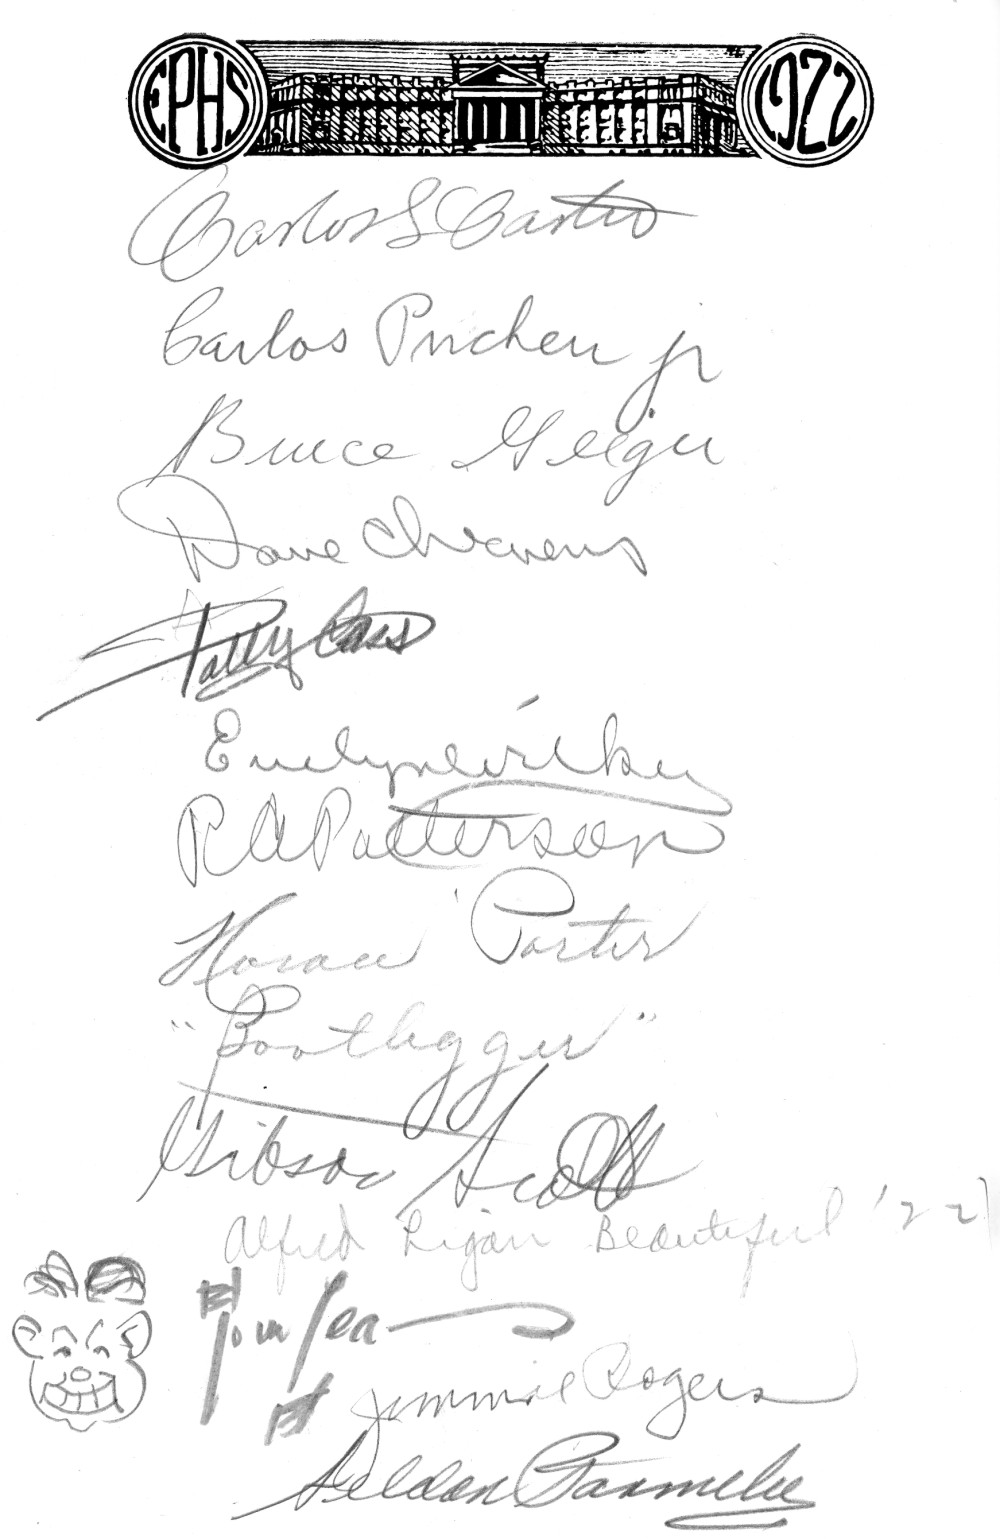 EPHS 1922
Carlos S Castro
Carlos Pricher jr
Bruce Geeger
Dave
Patty Cass
Evelyne
R A Patterson
Horace Porter
"Bootlegger"
Gibson Scott
Alfred Ligon Beautiful '22
Tom Lea
Jimmie Rogers
Seldon